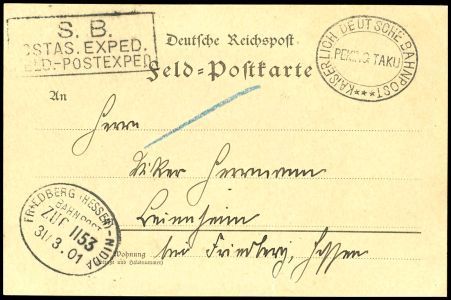 S. B.
OSTAS. EXPED.
FELD-POSTEXPED
Deutsche Reichspost
Feld-Postkarte
KAISERLICH DEUTSCHE BAHNPOST
PEKING-TAKU
***
An
Herrn
Herrmann
Leienheim
bei Friedberg, Hessen
Wohnung
(Straße und Hausnummer)
FRIEDBERG (HESSEN)-NIDDA
BAHNPOST
ZUG 1153
31/3.01